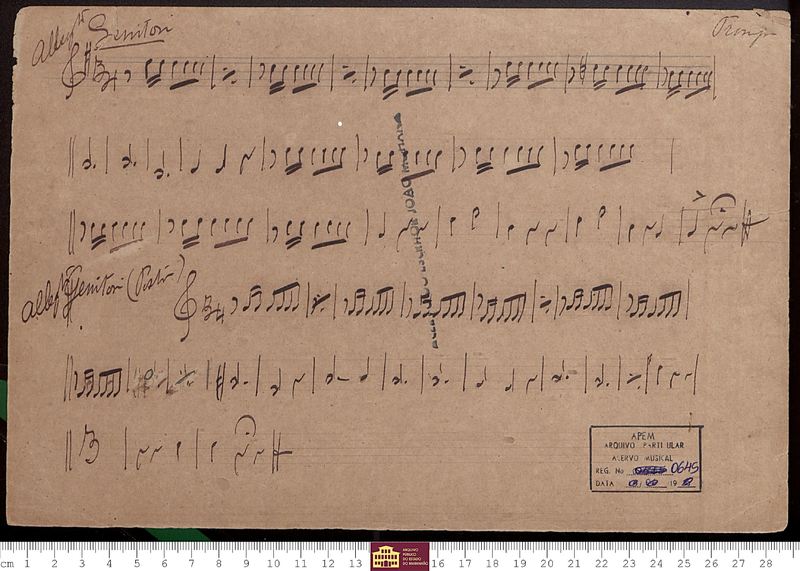 Allegtto Genitori
Tromp
3/4
Alleg Genitori (Posto)
3/4
APEM
ARQUIVO PARTICULAR
ACERVO MUSICAL
REG. No 0645
DATA 19
cm 1 2 3 4 5 6 7 8 9 10 11 12 13 16 17 18 19 20 21 22 23 24 25 26 27 28
ARQUIVO
PÚBLICO
DO ESTADO
DO MARANHÃO